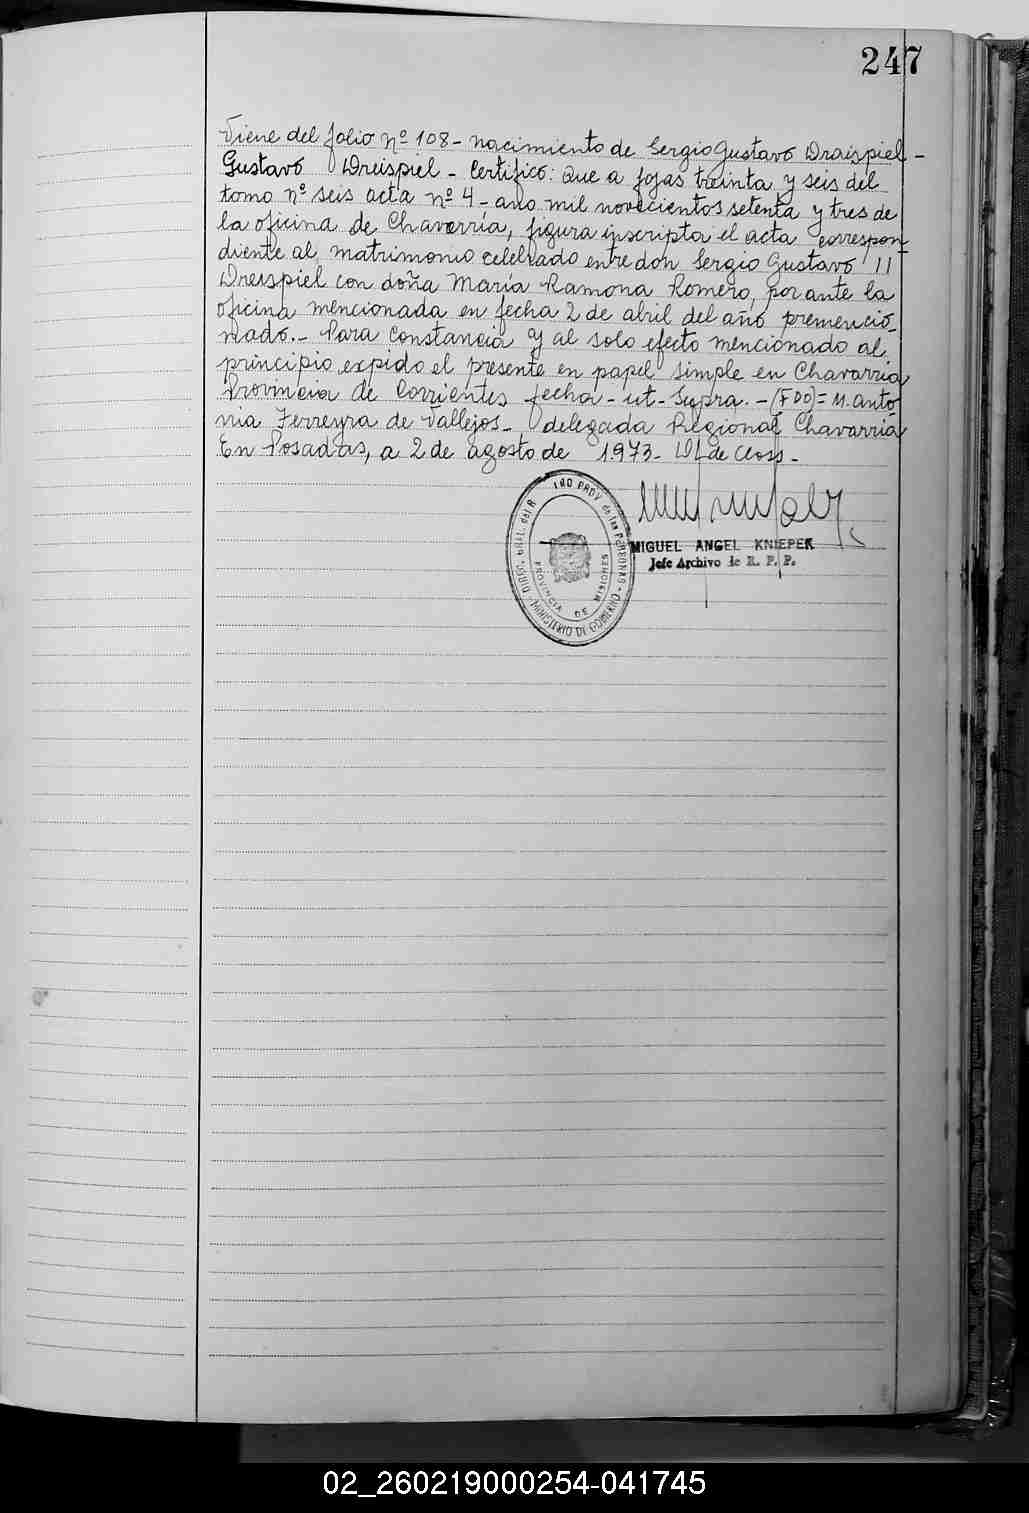 247
Viene del folio nº 108 - nacimiento de Sergio Gustavo Draispiel -
Gustavo Dreispiel - Certifico: Que a fojas treinta y seis del
tomo nº seis acta nº 4 - año mil novecientos setenta y tres de
la oficina de Chavarría, figura inscripta el acta correspon-
diente al matrimonio celebrado entre don Sergio Gustavo //
Dreispiel con doña María Ramona Romero, por ante la
oficina mencionada en fecha 2 de abril del año premencio-
nado. - Para constancia y al solo efecto mencionado al
principio expido el presente en papel simple en Chavarria
Provincia de Corrientes fecha - ut - supra. - (FDO) = M. Anto-
nia Ferreyra de Vallejos - delegada Regional Chavarria
En Posadas, a 2 de agosto de 1973 - de Closs -
PROV. de las PERSONAS - MINISTERIO DE GOBIERNO
PROVINCIA DE MISIONES
MIGUEL ANGEL KNIEPER
Jefe Archivo de R. P. P.
02_260219000254-041745